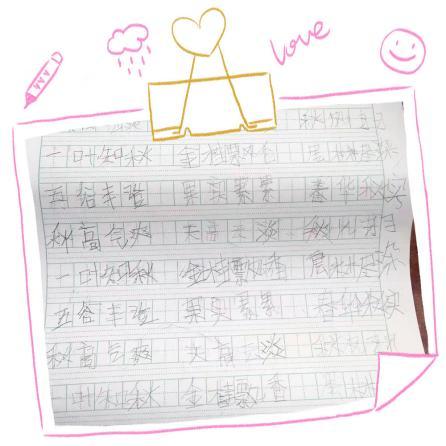 love
一叶知秋 金桂飘香 层林尽染
五谷丰登 果实累累 春华秋实
秋高气爽 天高云淡
一叶知秋 金桂飘香 层林尽染
五谷丰登 果实累累 春华秋实
秋高气爽 天高云淡
一叶知秋 金桂飘香